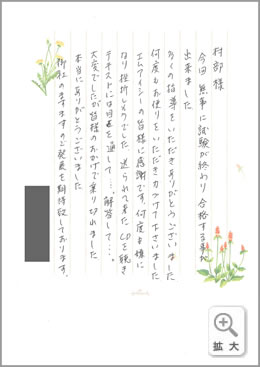 村部様
今回無事に試験が終わり合格する事が
出来ました
多くの指導をいただきありがとうございました
何度もお便りをいただき力づけて下さいました
エムアイシーの皆様に感謝です。何度も嫌に
なり挫折しそうでした 送られて来た CDを聴き
テキストには目を通して…、解答して…。
大変でしたが皆様のおかげで乗り切れました
本当にありがとうございました
御社のますますのご発展を期待致しております。
拡大